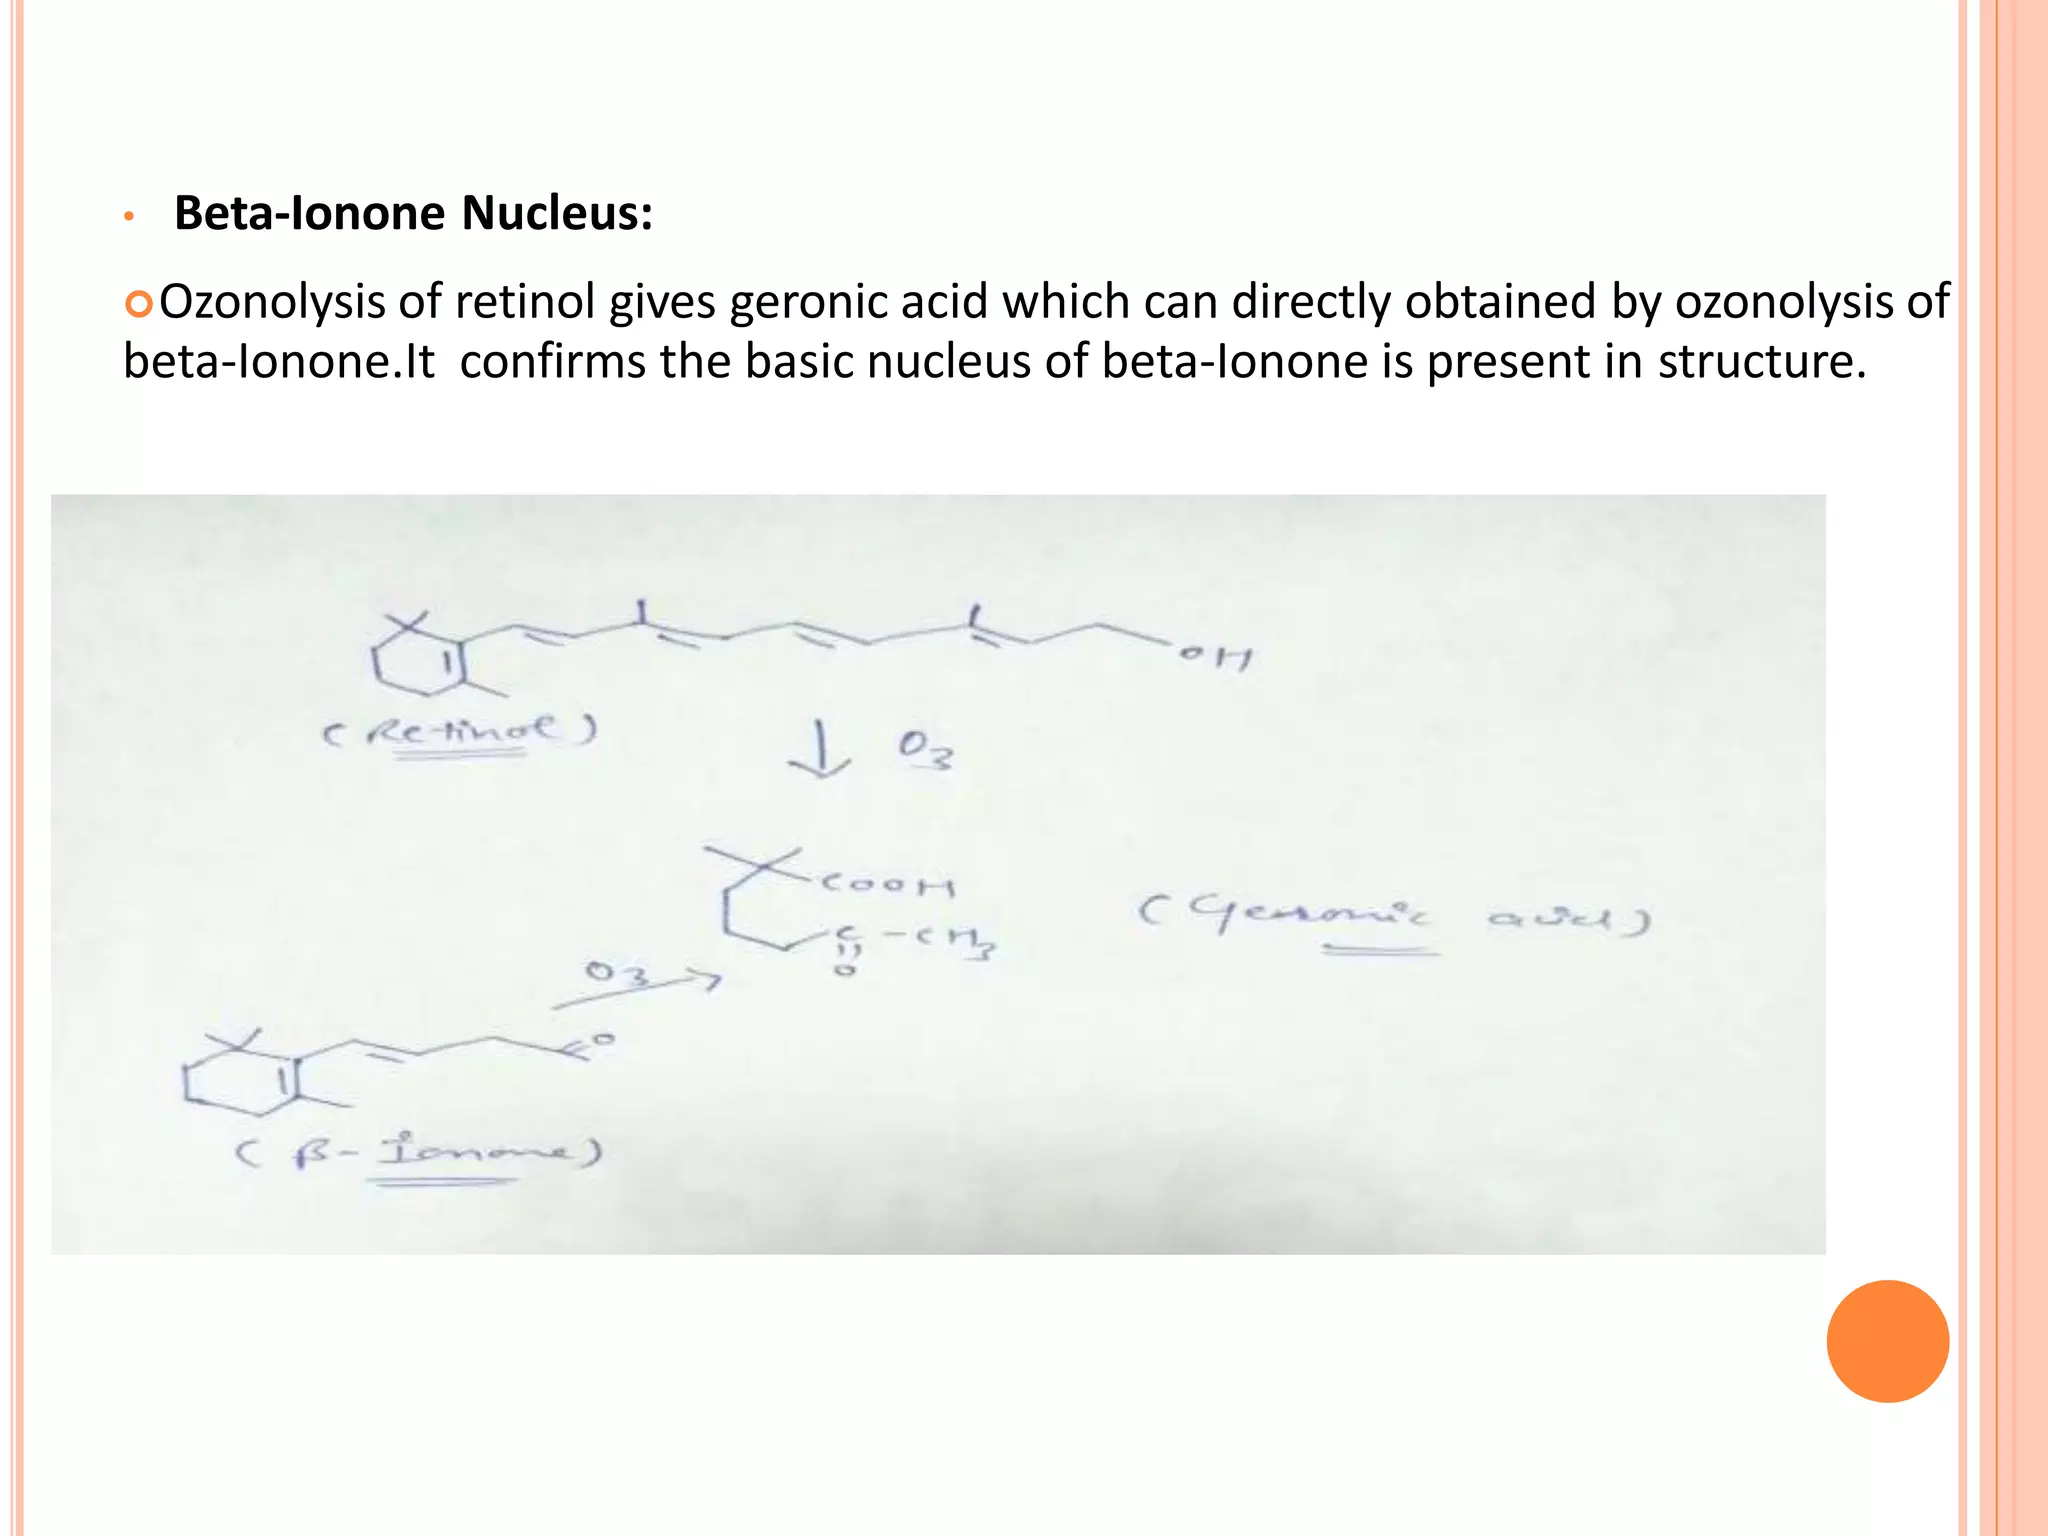 • Beta-Ionone Nucleus:
Ozonolysis of retinol gives geronic acid which can directly obtained by ozonolysis of
beta-Ionone.It confirms the basic nucleus of beta-Ionone is present in structure.
OH
(Retinol)
O3
COOH
C-CH3
O
(Geronic acid)
O3
O
(β-Ionone)